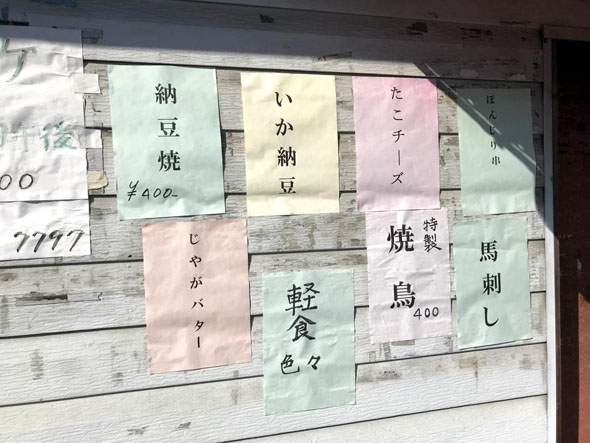 ケ
午後
00
7797
納豆焼
¥400-
いか納豆
たこチーズ
ぼんじり串
じゃがバター
軽食
色々
特製
焼鳥
400
馬刺し